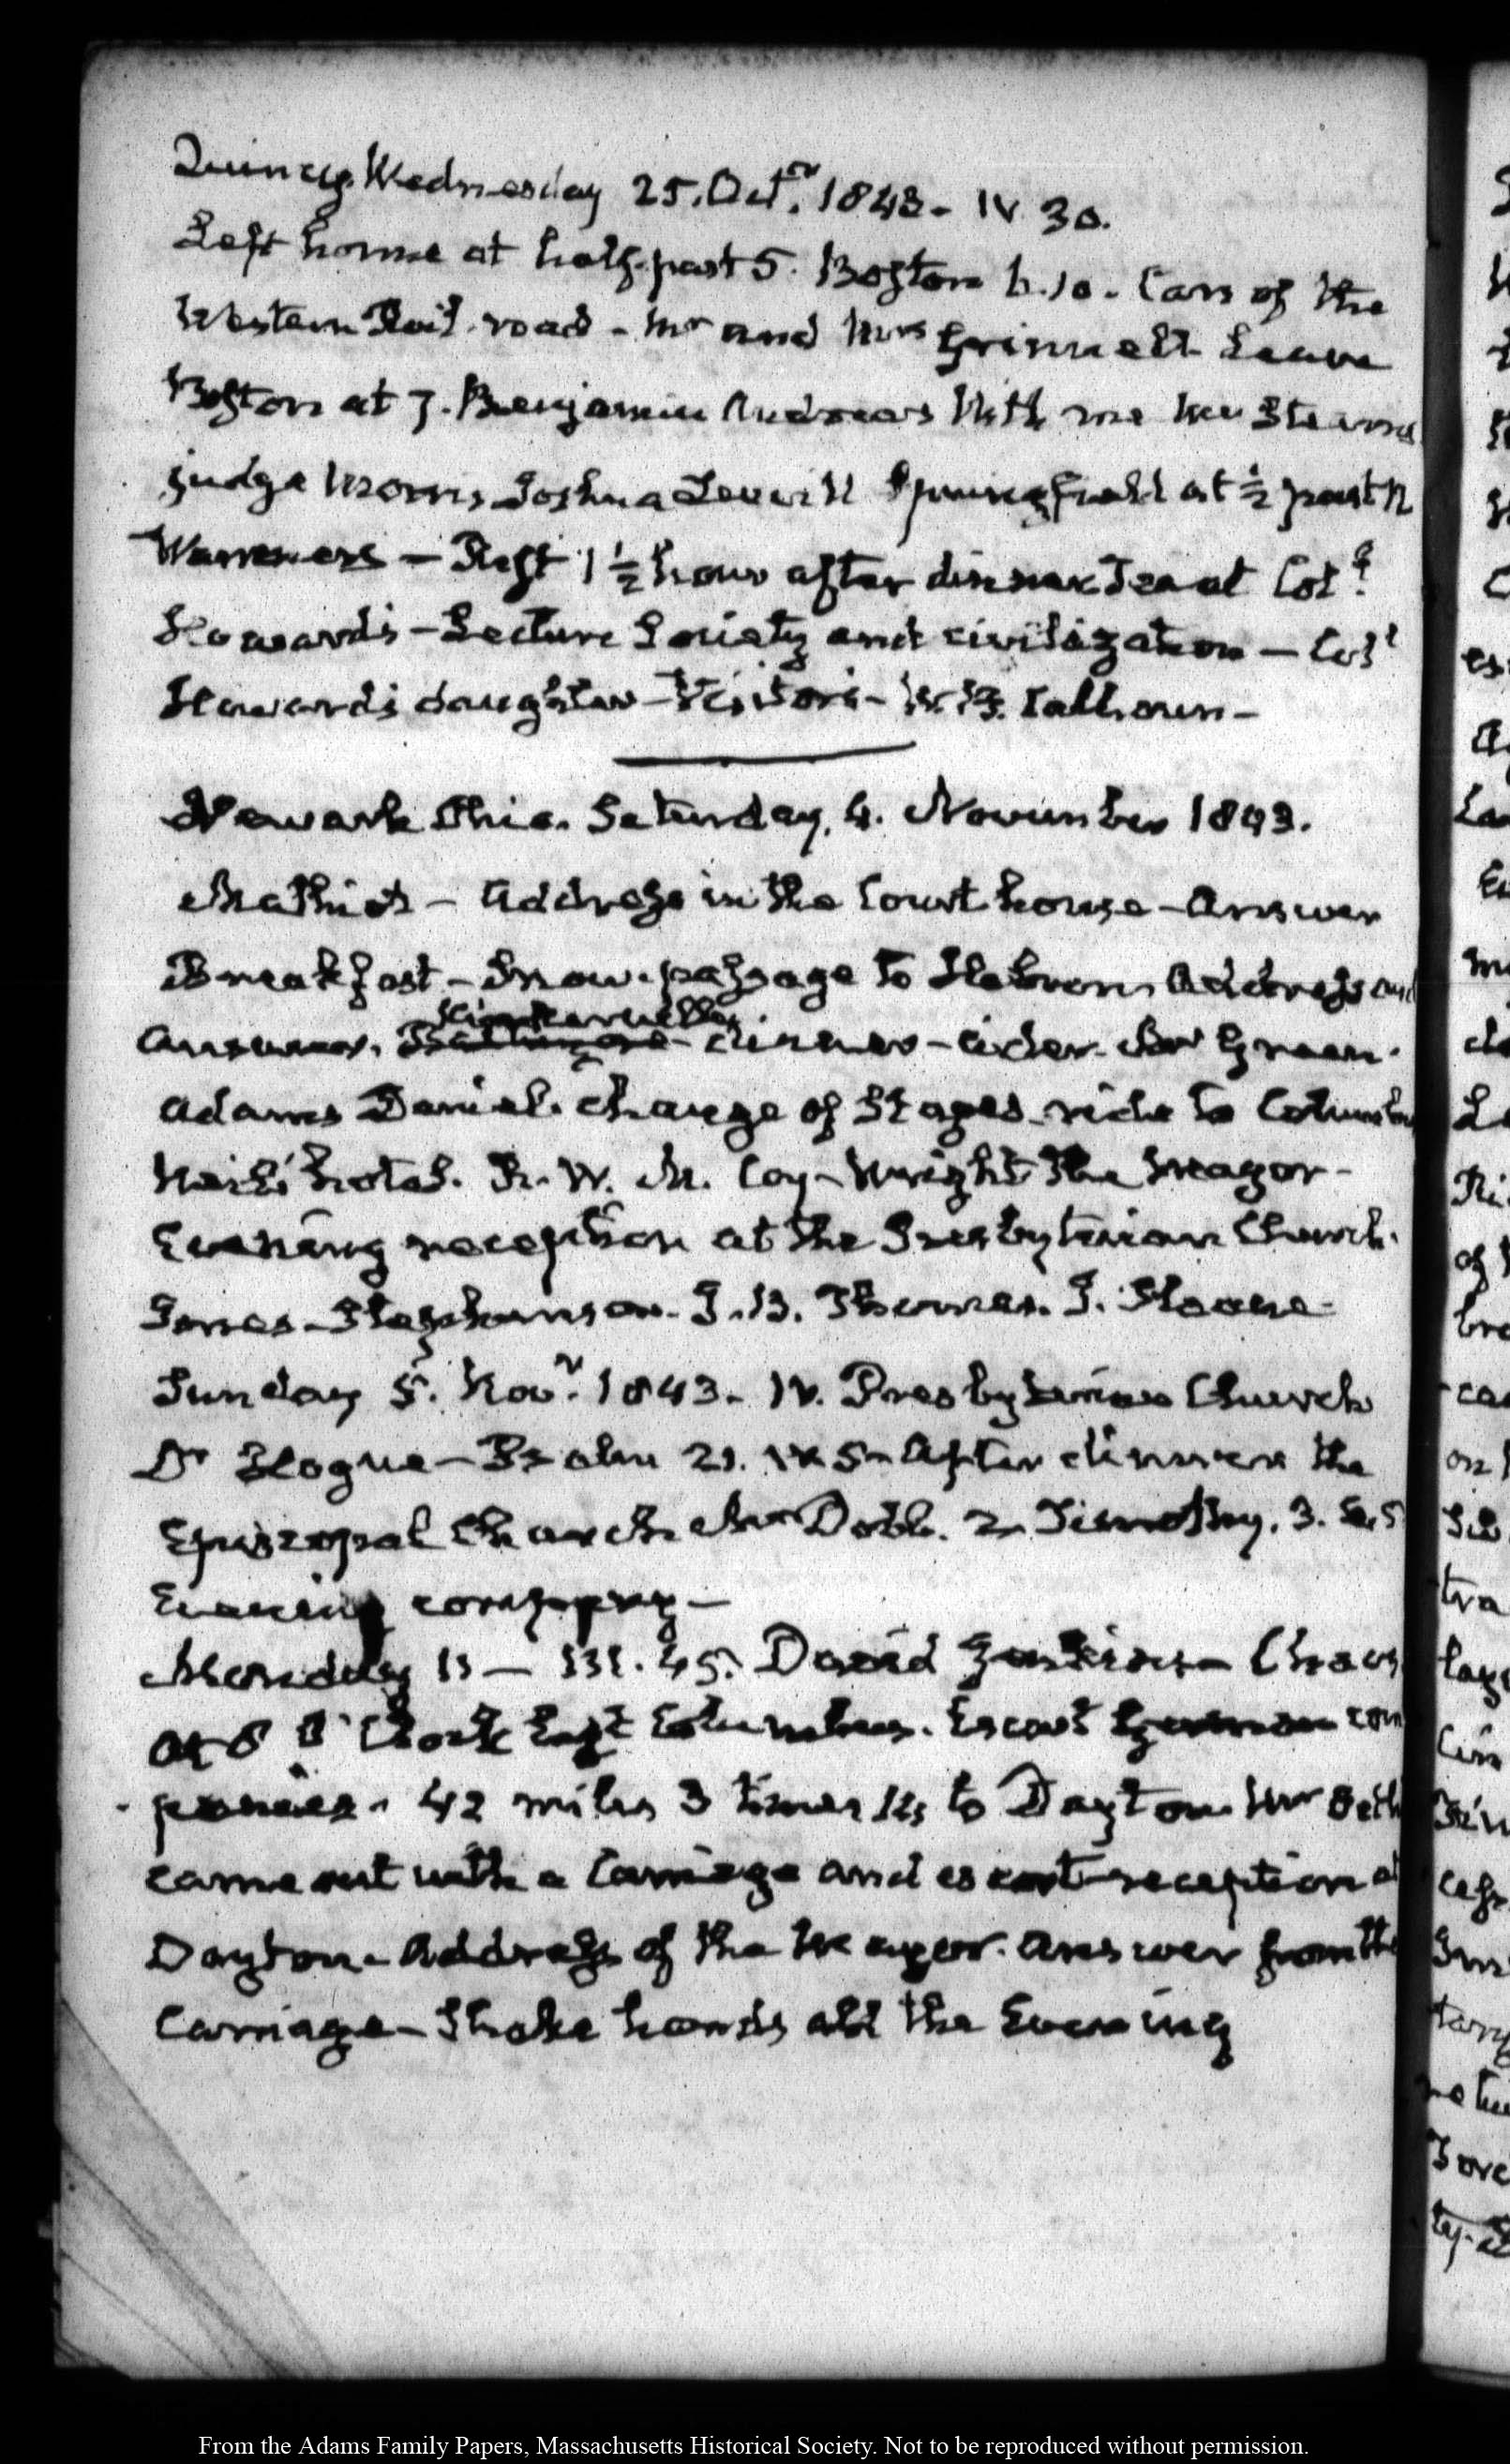 Quincy Wednesday 25. Octr. 1843. IV. 30.
Left home at half past 5. Boston 6.10. Cars of the
Western Rail-road - Mr and Mrs Grinnell Leave
Boston at 7. Benjamin Andrews With me Stearns
judge Morris, Joshua Leavitt Springfield at ½ past 12
Warreners - Rest 1½ hour after dinner Tea at Coll.
Howard's - Lecture Society and civilization - Coll
Howard's daughter - Visitors - W. B. Calhoun -
Newark Ohio. Saturday, 4. November 1843.
Mathiot - Address in the Court house - Answer
Breakfast - Snow. passage to Hebron Address and
answer. dinner - cider. Green.
Adams Daniel. change of Stages. ride to Columbus
Neil's hotel. Coy - Wright the Mayor -
Evening reception at the Presbyterian Church.
Jones - Stephenson - J. B. Thomas. J. Sloane
Sunday 5. Novr. 1843 - IV. Presbyterian Church
Dr Hogue - Psalm After dinner the
Episcopal Church Mr Dobb. 2. Timothy. 3.
Evening company -
Monday 45. David
at 6 O'Clock left Columbus. Escort German com
panies. 42 miles 3 times to Dayton Mr
came out with a Carriage and escort reception at
Dayton - Address of the Mayor. Answer from the
Carriage - Shake hands all the Evening
From the Adams Family Papers, Massachusetts Historical Society. Not to be reproduced without permission.